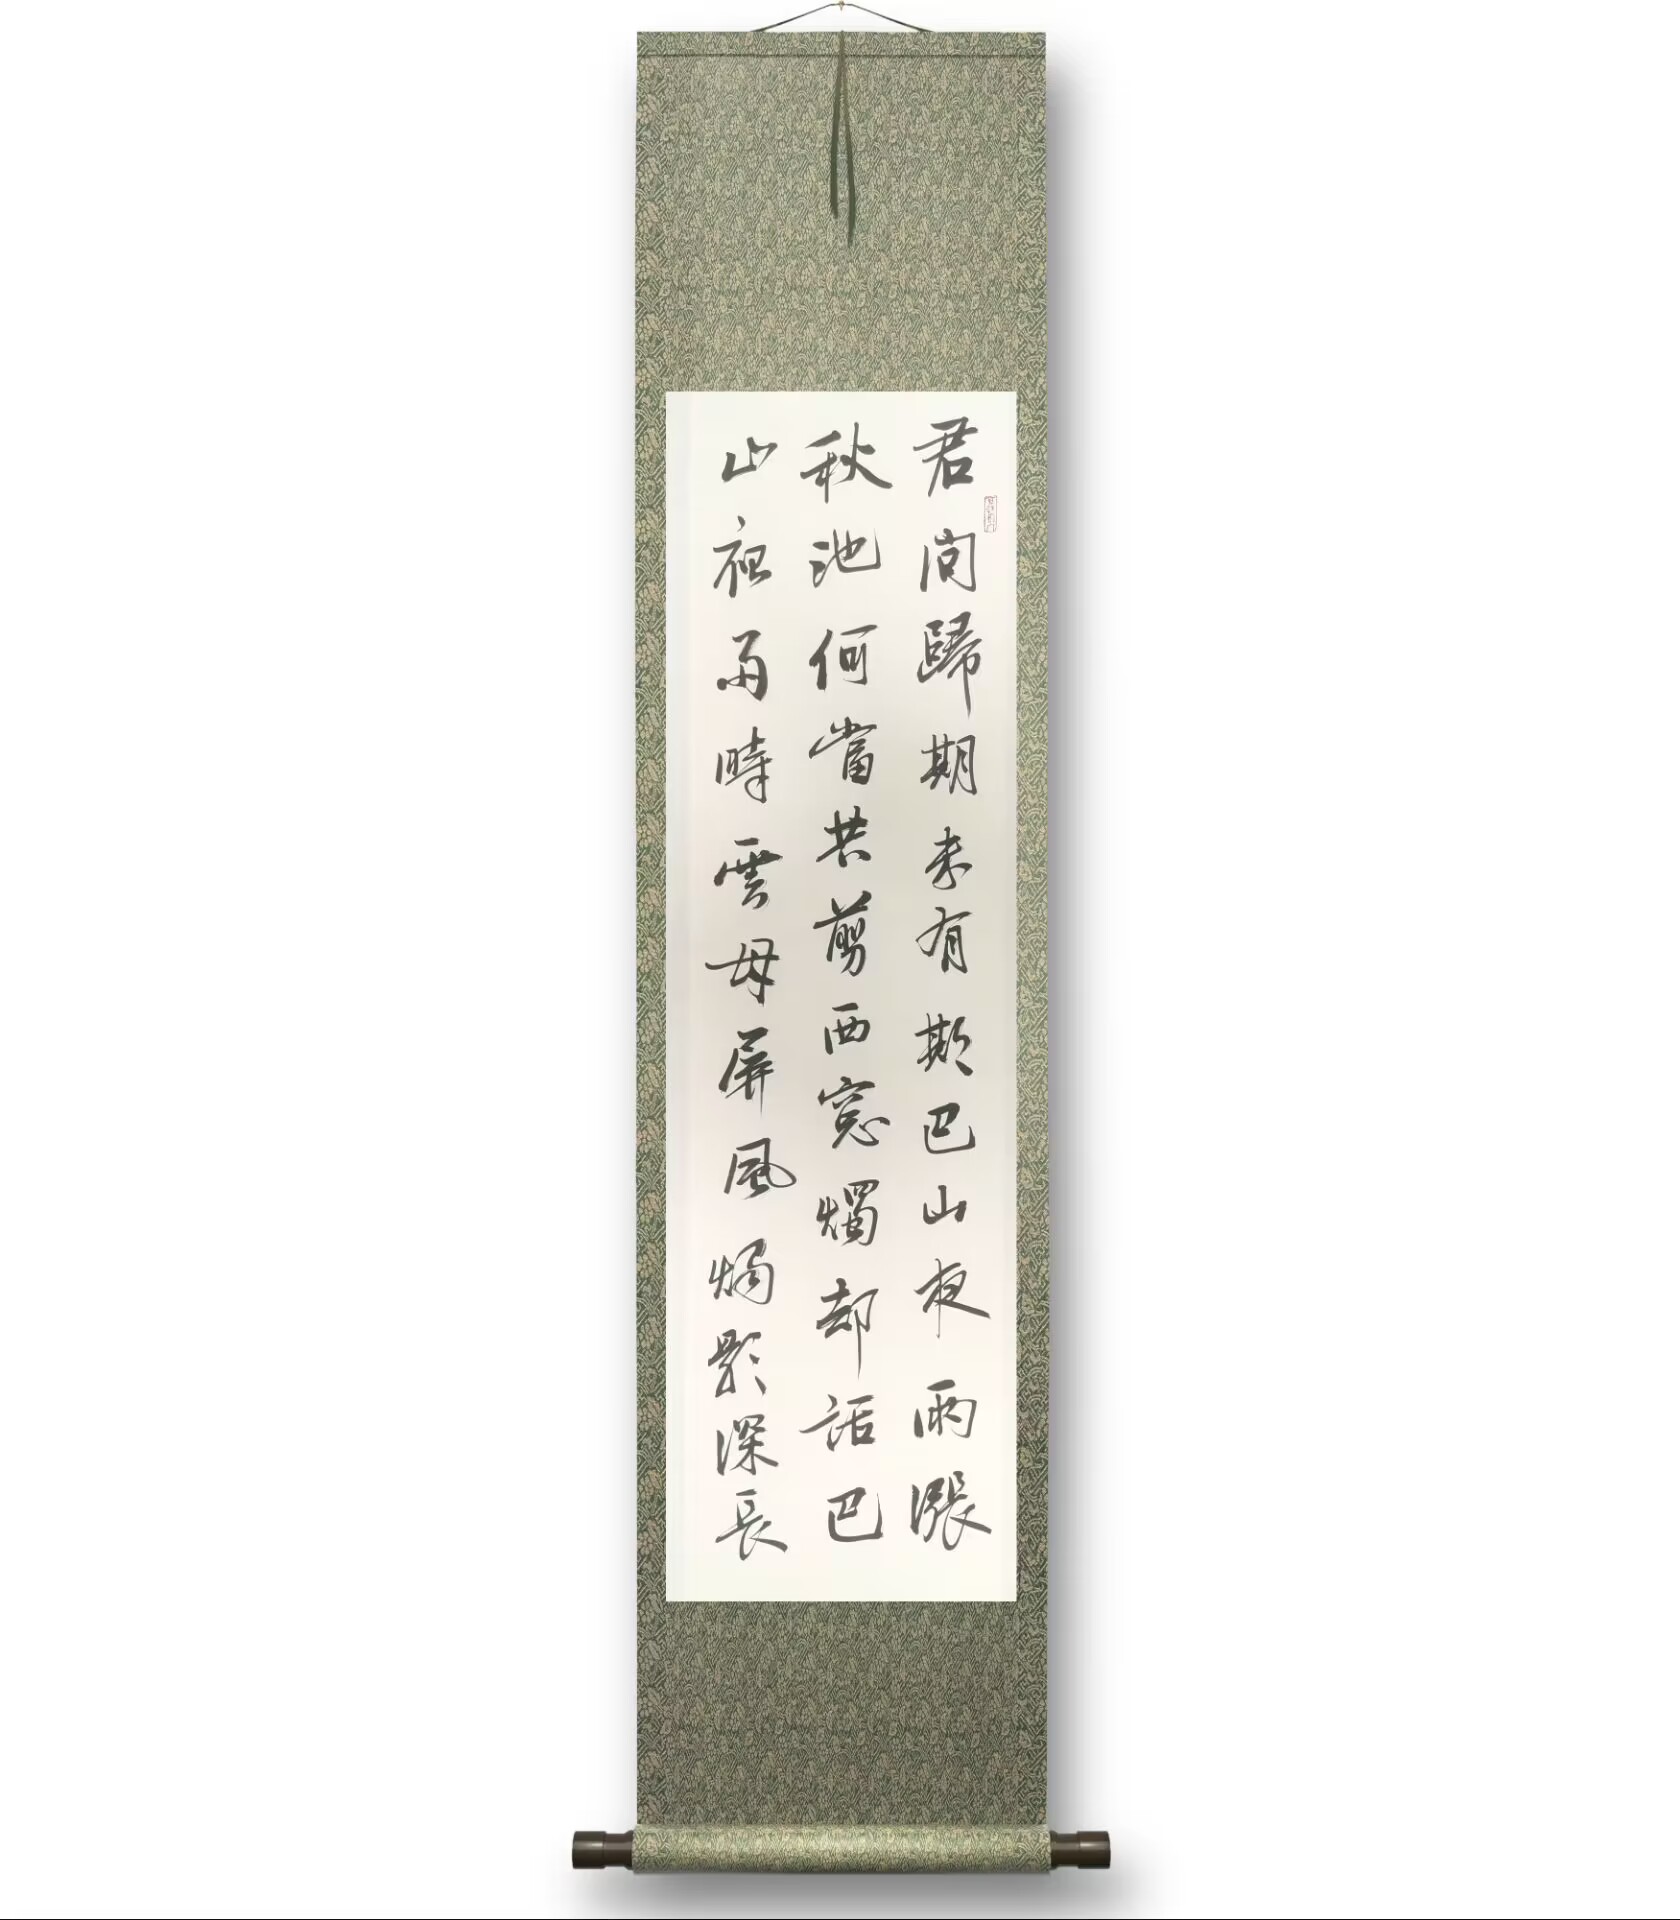 君問歸期未有欺巴山夜雨漲
秋池何當共剪西窓燭却話巴
山夜雨時雲母屏風燭影深長